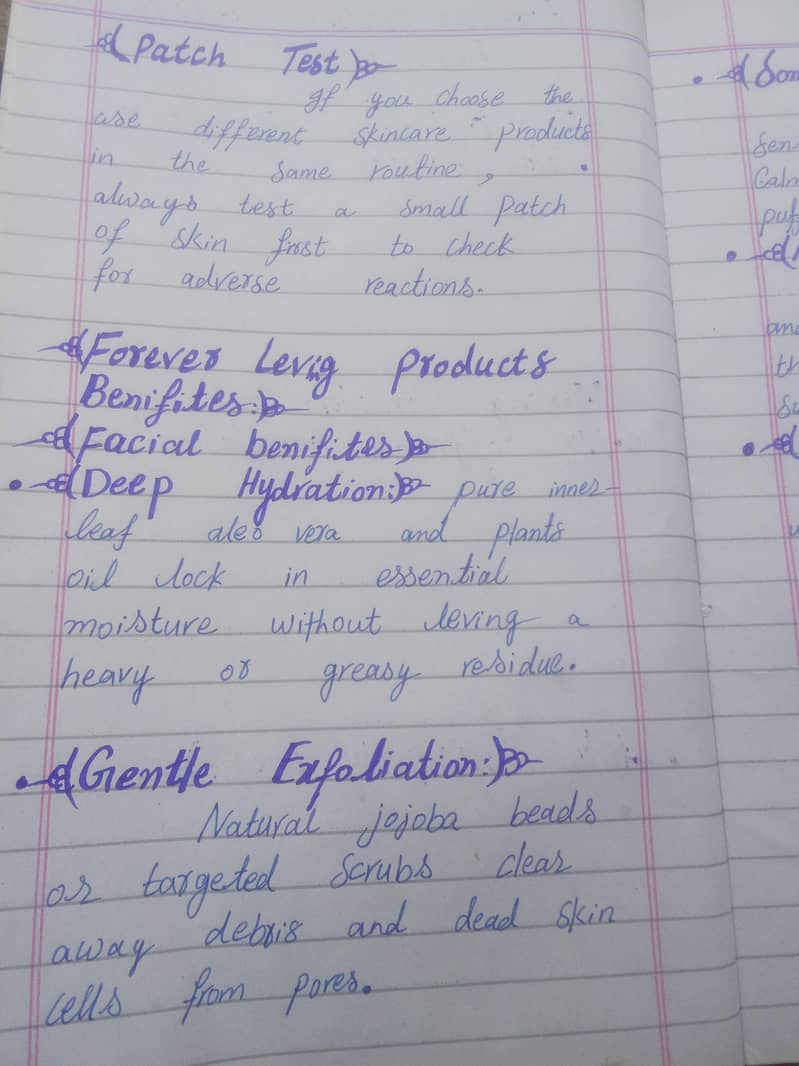 Patch Test
If you choose the
use different skincare products
in the same routine,
always test a small patch
of skin frist to check
for adverse reactions.
Forever Levig products
Benifites:
Facial benifites
• Deep Hydration: pure inner-
leaf aleo vera and plants
oil lock in essential
moisture without leving a
heavy or greasy residue.
• Gentle Exfoliation:
Natural jojoba beads
or targeted scrubs clear
away debris and dead skin
cells from pores.